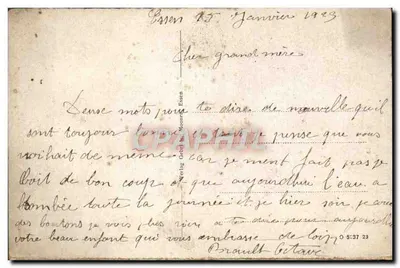 Essen 15 Janvier 1923
Cher grand mère
Deuse mots pour te dire de nouvelle qu'il
sont toujour bonne et je panse que vous
soihait de meme car je ment fait pas je
boit de bon coup et que aujourdhui l'eau a
tombée toute la journée et je hier soir je
des boutons je vois plus rien a te dire pour aujourdhui
votre beau enfant qui vous embrasse de loin
Brault Octave
CPAPHIL
D-5:37 23